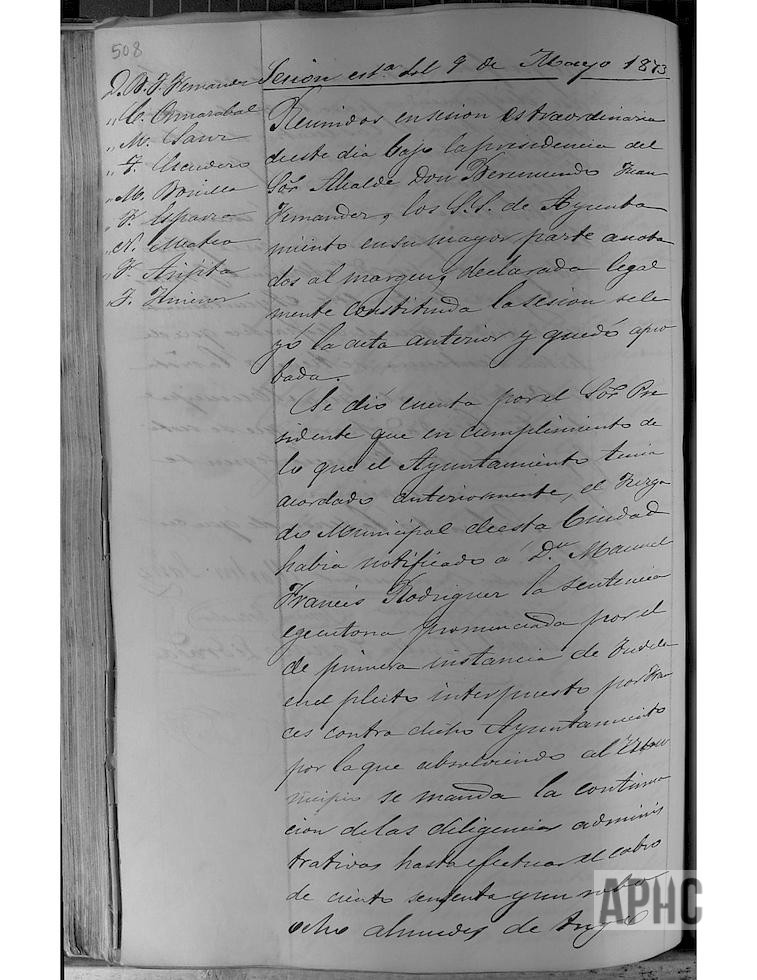 508
D. B. J. Fernandez
" C. Ormazabal
" M. Sanz
" F. Escudero
" M. Bonilla
" F. Esparza
" N. Mateo
" F. Arijita
" F. Ximenez
Sesion est.ª del 9 de Mayo 1873
Reunidos en sesion estraordinaria
de este dia bajo la presidencia del
Sõr Alcalde Don Beremundo Juan
Fernandez, los S.S. de Ayunta
miento en su mayor parte anota
dos al margen, declarada legal
mente constituida la sesion se le
yó la acta anterior y quedó apro
bada.
Se dió cuenta por el Sõr Pre
sidente que en cumplimiento de
lo que el Ayuntamiento tenia
acordado anteriormente, el Juzga
do Municipal de esta Ciudad
habia notificado á D.n Manuel
Francés Rodriguez la sentencia
egecutoria pronunciada por el
de primera instancia de Tudela
en el pleito interpuesto por Fran
ces contra dicho Ayuntamiento
por la que absolviendo al
nicipio se manda la continua
cion de las diligencias adminis
trativas hasta efectuar el cobro
de ciento sesenta y un robos
ocho almudes de trigo
APHC